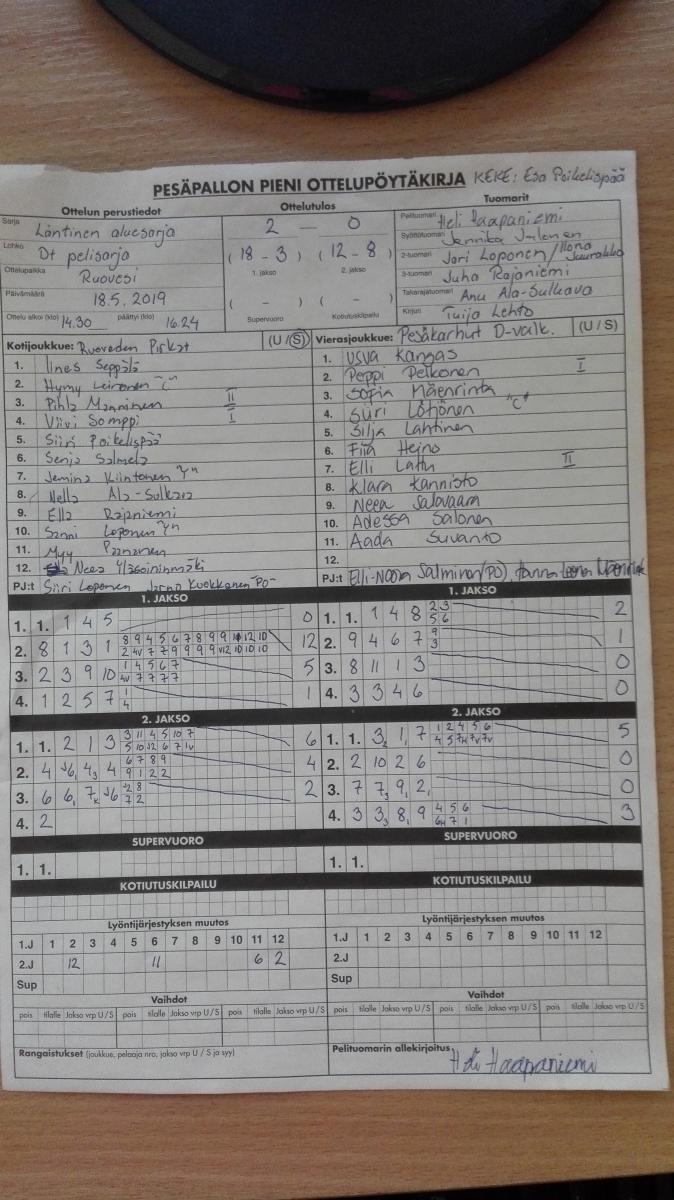 PESÄPALLON PIENI OTTELUPÖYTÄKIRJA KEKE: Esa Poikelispää
Ottelun perustiedot Ottelutulos Tuomarit
Sarja Läntinen aluesarja 2 - 0 Pelituomari Heli Haapaniemi
Lohko Dt pelisarja (18 - 3) (12 - 8) Syöttötuomari Jennika
1. jakso 2. jakso 2-tuomari Jari Loponen/Ilona
Ottelupaikka Ruovesi 3-tuomari Juha Rajaniemi
Päivämäärä 18.5. 2019 ( - ) ( - ) Takarajatuomari Anu Ala-Sulkava
Ottelu alkoi (klo) 14.30 päättyi (klo) 16.24 Supervuoro Kotiutuskilpailu Kirjuri Tuija Lehto
Kotijoukkue: Ruoveden Pirkat (U / S) Vierasjoukkue: Pesäkarhut D-valk. (U / S)
1. Iines Seppälä 1. Usva Kangas
2. Hymy Leironen "C" 2. Peppi Pelkonen I
3. Pihla Manninen II 3. Sofia Mäenrinta
4. Viivi Somppi I 4. Siiri Lötjönen "C"
5. Siiri Poikelispää 5. Silja Lahtinen
6. Senja Salmela 6. Fiia Heino
7. Jemina Kiintonen 7. Elli Lattu II
8. Nella Ala-Sulkava 8. Klara Kannisto
9. Ella Rajaniemi 9. Neea Salavaara
10. Sanni Loponen 10. Adessa Salonen
11. Myy Paananen 11. Aada Suvanto
12. Neea Yläsoininmäki 12.
PJ:t Siiri Loponen Jarno Kuokkanen -PO- PJ:t Elli-Noora Salminen(PO),
1. JAKSO 1. JAKSO
1. 1. 1 4 5 0 1. 1. 1 4 8 2 3 2
5 6
2. 8 1 3 1 8 9 4 5 6 7 8 9 9 10 12 10 12 2. 9 4 6 7 9 1
3
3. 2 3 9 10 1 4 5 6 7 5 3. 8 11 1 3 0
4v 7 7 7 7
4. 1 2 5 7 1 1 4. 3 3 4 6 0
4
2. JAKSO 2. JAKSO
1. 1. 2 1 3 3 11 4 5 10 7 6 1. 1. 3, 1, 7 1 2 4 5 6 5
5 10 12 6 7 1v
2. 4 J6, 4, 4 6 7 8 9 4 2. 2 10 2 6 0
9 1 2 2
3. 6 6, 7 J6 2 8 2 3. 7 7, 9, 2, 0
7 2
4. 2 4. 3 3, 8, 9 4 5 6 3
6H 7 1
SUPERVUORO SUPERVUORO
1. 1. 1. 1.
KOTIUTUSKILPAILU KOTIUTUSKILPAILU
Lyöntijärjestyksen muutos Lyöntijärjestyksen muutos
1.J 1 2 3 4 5 6 7 8 9 10 11 12 1.J 1 2 3 4 5 6 7 8 9 10 11 12
2.J 12 11 6 2 2.J
Sup Sup
Vaihdot Vaihdot
pois tilalle Jakso vrp U / S pois tilalle Jakso vrp U / S pois tilalle Jakso vrp U / S pois tilalle Jakso vrp U / S pois tilalle Jakso vrp U / S pois tilalle Jakso vrp U / S
Rangaistukset (joukkue, pelaaja nro, jakso vrp U / S ja syy) Pelituomarin allekirjoitus
Heli Haapaniemi